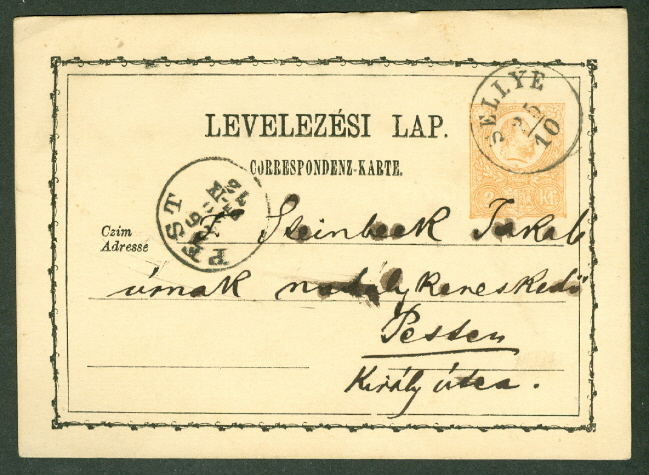 LEVELEZÉSI LAP.
CORRESPONDENZ-KARTE.
SELLYE
25/10
PEST
Czim
Adresse
T. Steinbeck Jakab
úrnak nadálykereskedő
Pesten
Király útca.